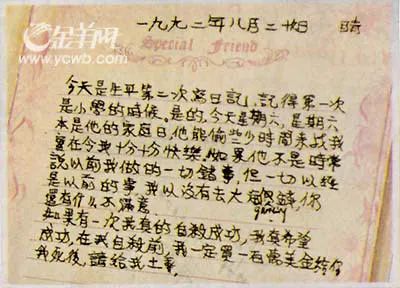 金羊网
www.ycwb.com
一九九二年八月二十日 晴
Special Friend
今天是生平第二次寫日記,記得第一次
是小學的時候。是的,今天是期六,星期六
本是他的家庭日,他能偷些少時間來找我
實在令我十分十分快樂,如果他不是時常
說以前我做的一切錯事,但一切以經
是以前的事,我以沒有去大 你
還有什么不滿意
如果有一次我真的自殺成功,我真希望
成功,在我自殺前,我一定買一百萬美金給你
我死後,請給我土葬,